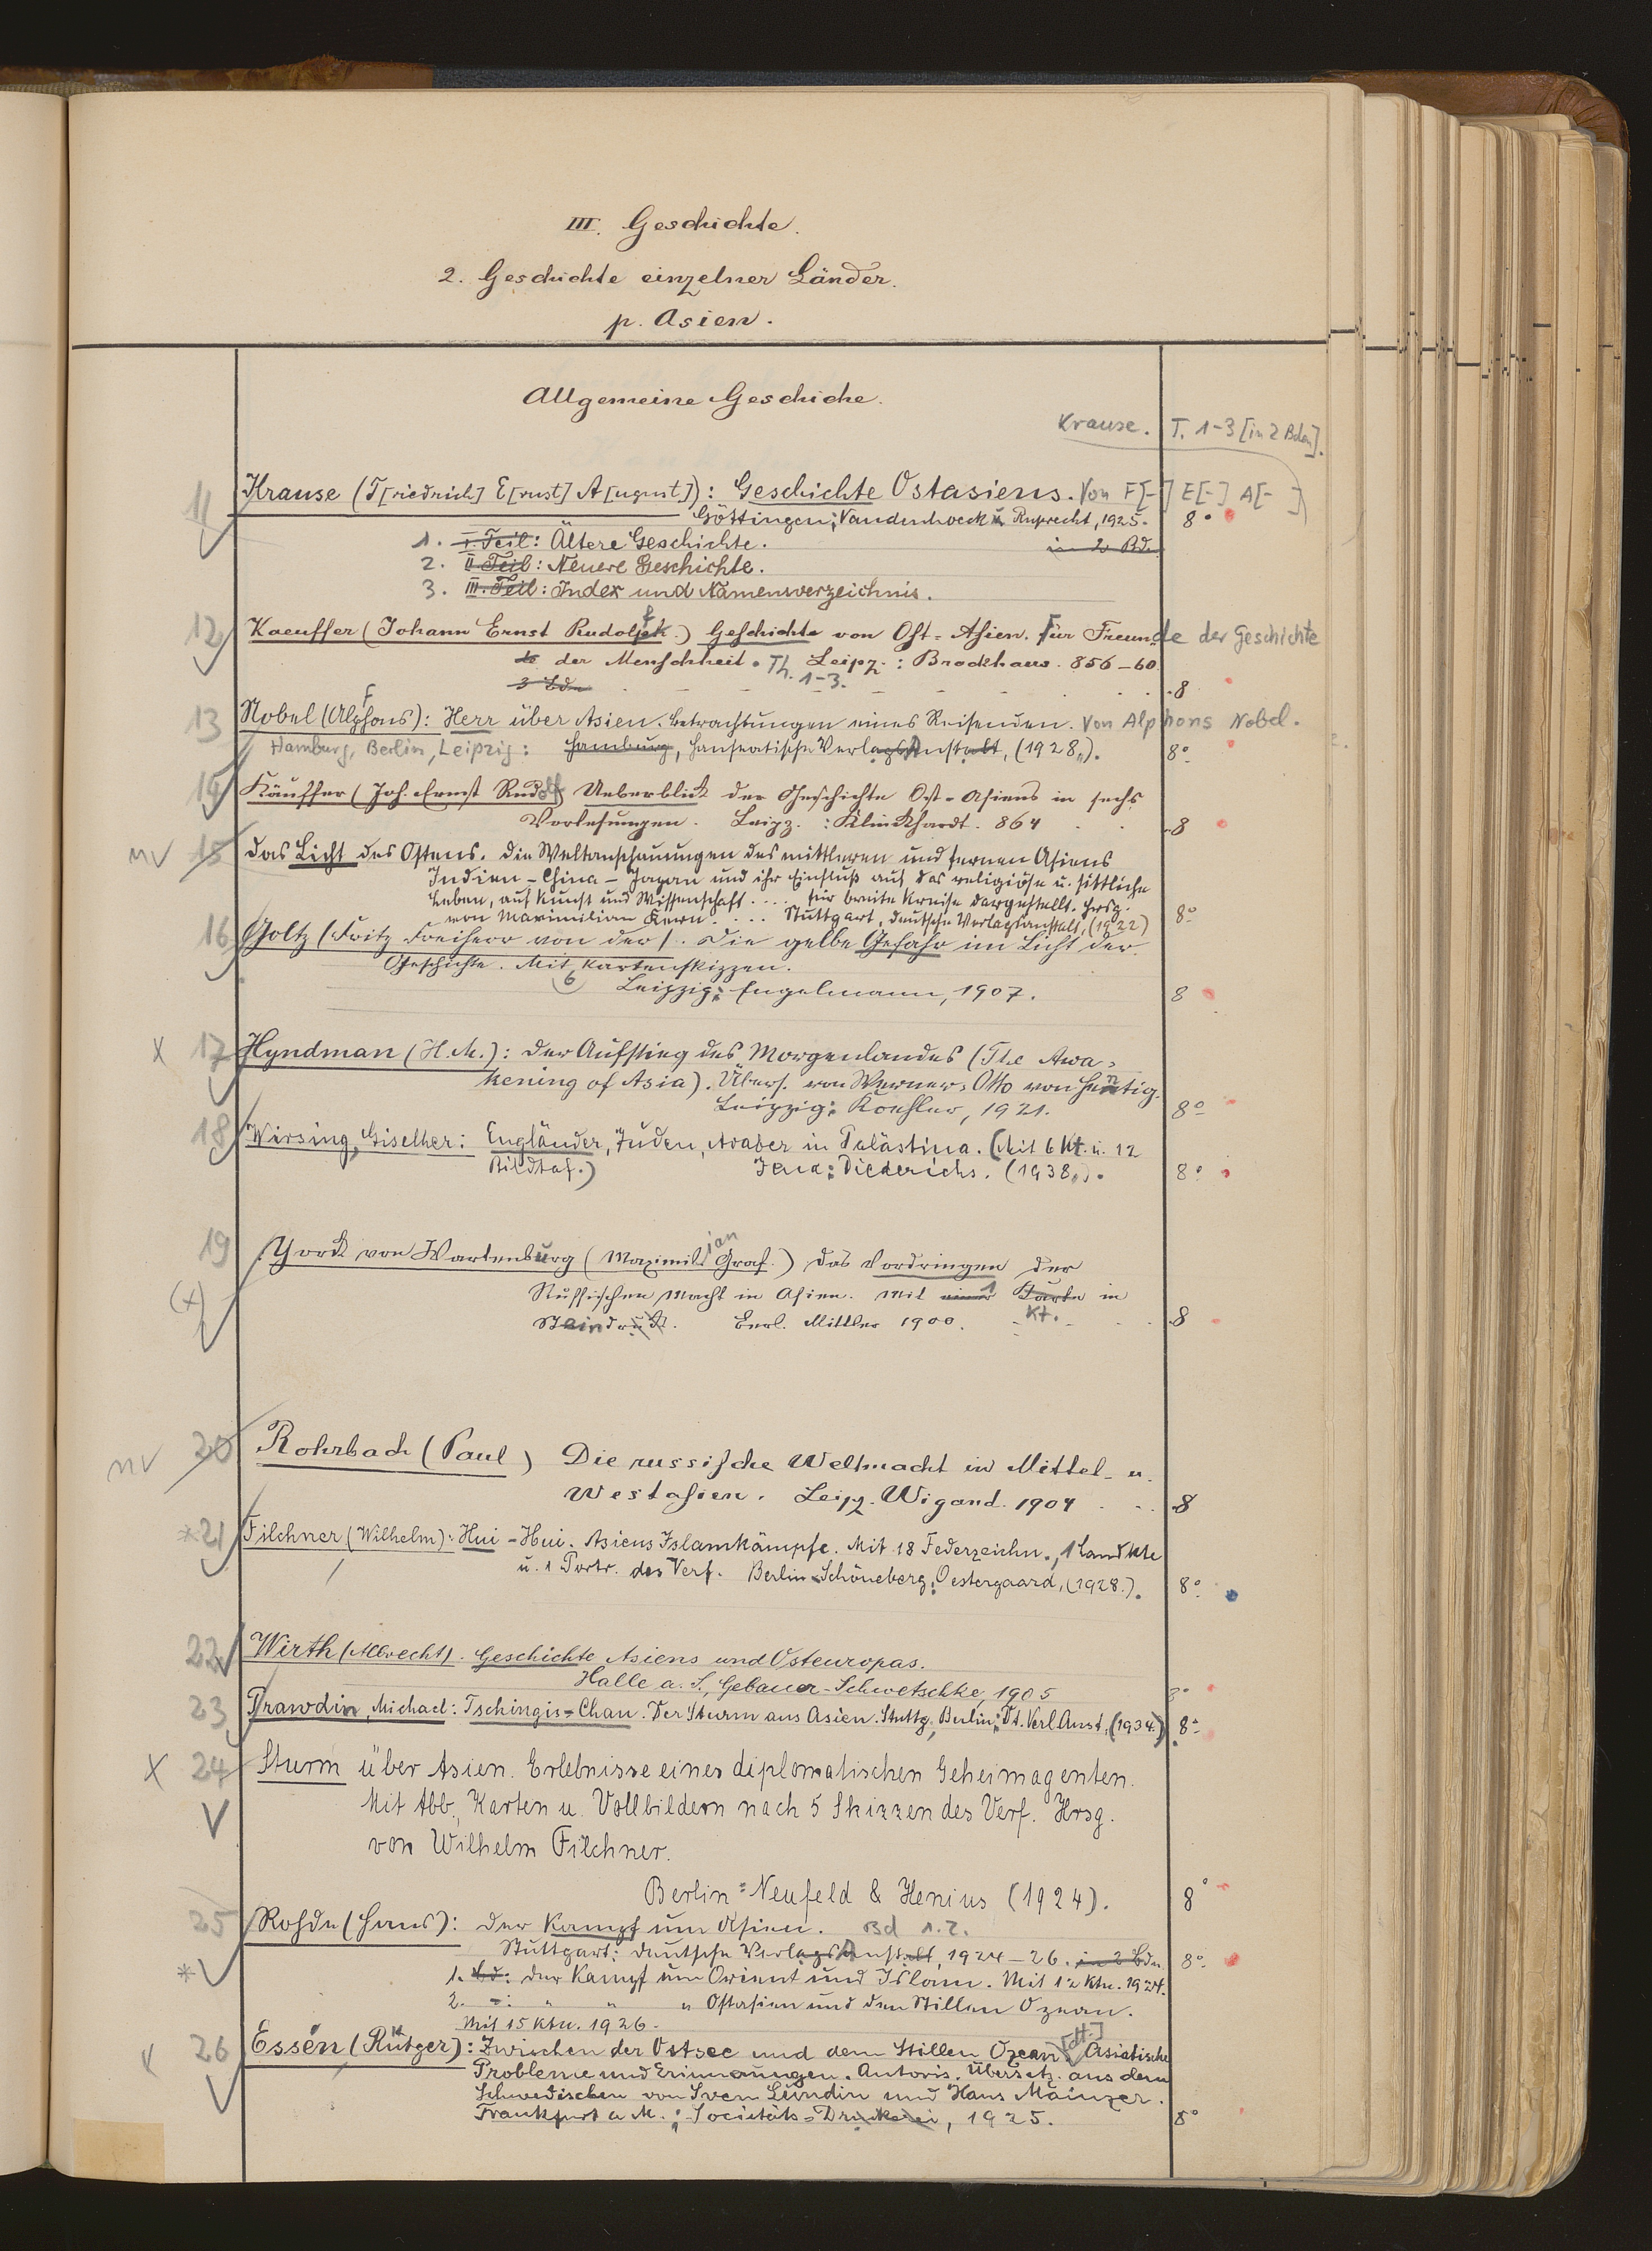 III. Geschichte.
2. Geschichte einzelner Länder.
p. Asien.
Allgemeine Geschiche.
Krause. T. 1-3 [in 2 Bden].
11 Krause (F[riedrich] E[rnst] A[ugust]): Geschichte Ostasiens. Von F[-] E[-] A[- ]
Göttingen: Vandenhoeck u. Ruprecht, 1925. 8°
1. I. Teil: Ältere Geschichte. in 2 Bd.
2. II Teil: Neuere Geschichte.
3. III. Teil: Index und Namensverzeichnis.
12 Kaeuffer (Johann Ernst Rudolf.) Geschichte von Ost-Asien. Für Freunde der Geschichte
der Menschheit. Th. 1-3. Leipz.: Brockhaus. 856-60.
3 Bde 8
13 Nobel (Alfons): Herr über Asien. Betrachtungen eines Reisenden. Von Alphons Nobel.
Hamburg, Berlin, Leipzig: Hamburg, Hanseatische Verlagsanstalt, (1928). 8°
14 Käuffer (Joh. Ernst Rudolf) Ueberblick der Geschichte Ost-Asiens in sechs
Vorlesungen. Leipz.: Klinkhardt. 864 8
nv 15 Das Licht des Ostens. Die Weltanschauungen des mittleren und fernen Asiens
Indien - China - Japan und ihr Einfluß auf das religiöse u. sittliche
Leben, auf Kunst und Wissenschaft .... für breite Kreise dargestellt. Hrsg.
von Maximilian Kern .... Stuttgart, Deutsche Verlagsanstalt, (1922) 8°
16 Goltz (Fritz Freiherr von der). Die gelbe Gefahr im Licht der
Geschichte. Mit 6 Kartenskizzen.
Leipzig: Engelmann, 1907. 8
X 17 Hyndman (H. M.): Der Aufstieg des Morgenlandes (The Awa-
kening of Asia). Übers. von Werner-Otto von Hentig.
Leipzig: Koehler, 1921. 8°
18 Wirsing, Giselher: Engländer, Juden, Araber in Palästina. (Mit 6 Kt. u. 12
Bildtaf.) Jena: Diederichs. (1938). 8°
19 Yorck von Wartenburg (Maximilian Graf.) Das Vordringen der
(x) Russischen Macht in Asien. Mit einer 1 Karte Kt. in
Steindruck. Berl. Mittler 1900. 8
nv 20 Rohrbach (Paul) Die russische Weltmacht in Mittel- u.
Westasien. Leipz. Wigand. 1904 8
*21 Filchner (Wilhelm): Hui-Hui. Asiens Islamkämpfe. Mit 18 Federzeichn., 1 Landkte
u. 1 Portr. des Verf. Berlin-Schöneberg: Oestergaard, (1928.). 8°
22 Wirth (Albrecht). Geschichte Asiens und Osteuropas.
Halle a. S., Gebauer-Schwetschke, 1905 8°
23 Prawdin, Michael: Tschingis-Chan. Der Sturm aus Asien. Stuttg., Berlin: Dt. Verl. Anst, (1934.) 8°
X 24 Sturm über Asien. Erlebnisse eines diplomatischen Geheimagenten.
Mit Abb., Karten u. Vollbildern nach 5 Skizzen des Verf. Hrsg.
von Wilhelm Filchner.
Berlin: Neufeld & Henius (1924). 8°
25 Rohde (Hans): Der Kampf um Asien. Bd 1.2.
Stuttgart: Deutsche Verlagsanstalt, 1924-26. in 2 Bdn. 8°
* 1. Bd: Der Kampf um Orient und Islam. Mit 12 Ktn. 1924.
2. -: " " " Ostasien und den Stillen Ozean.
Mit 15 Ktn. 1926.
26 Essén (Rütger): Zwischen der Ostsee und dem Stillen Ozean [dt.] Asiatische
Probleme und Erinnerungen. Autoris. Übersetz. aus dem
Schwedischen von Sven Lundin und Hans Mainzer.
Frankfurt a. M.: Societäts-Druckerei, 1925. 8°